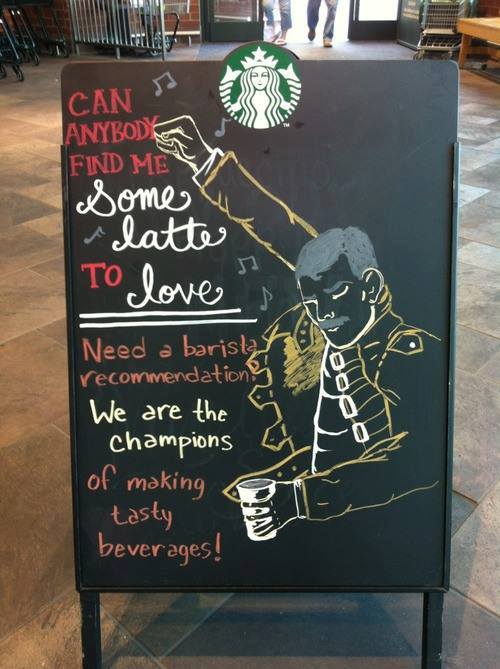 CAN
ANYBODY
FIND ME
Some
latte
TO love
Need a barista
recommendation?
We are the
champions
of making
tasty
beverages!